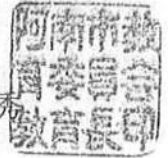 阿南市教
育委員会
教育長印